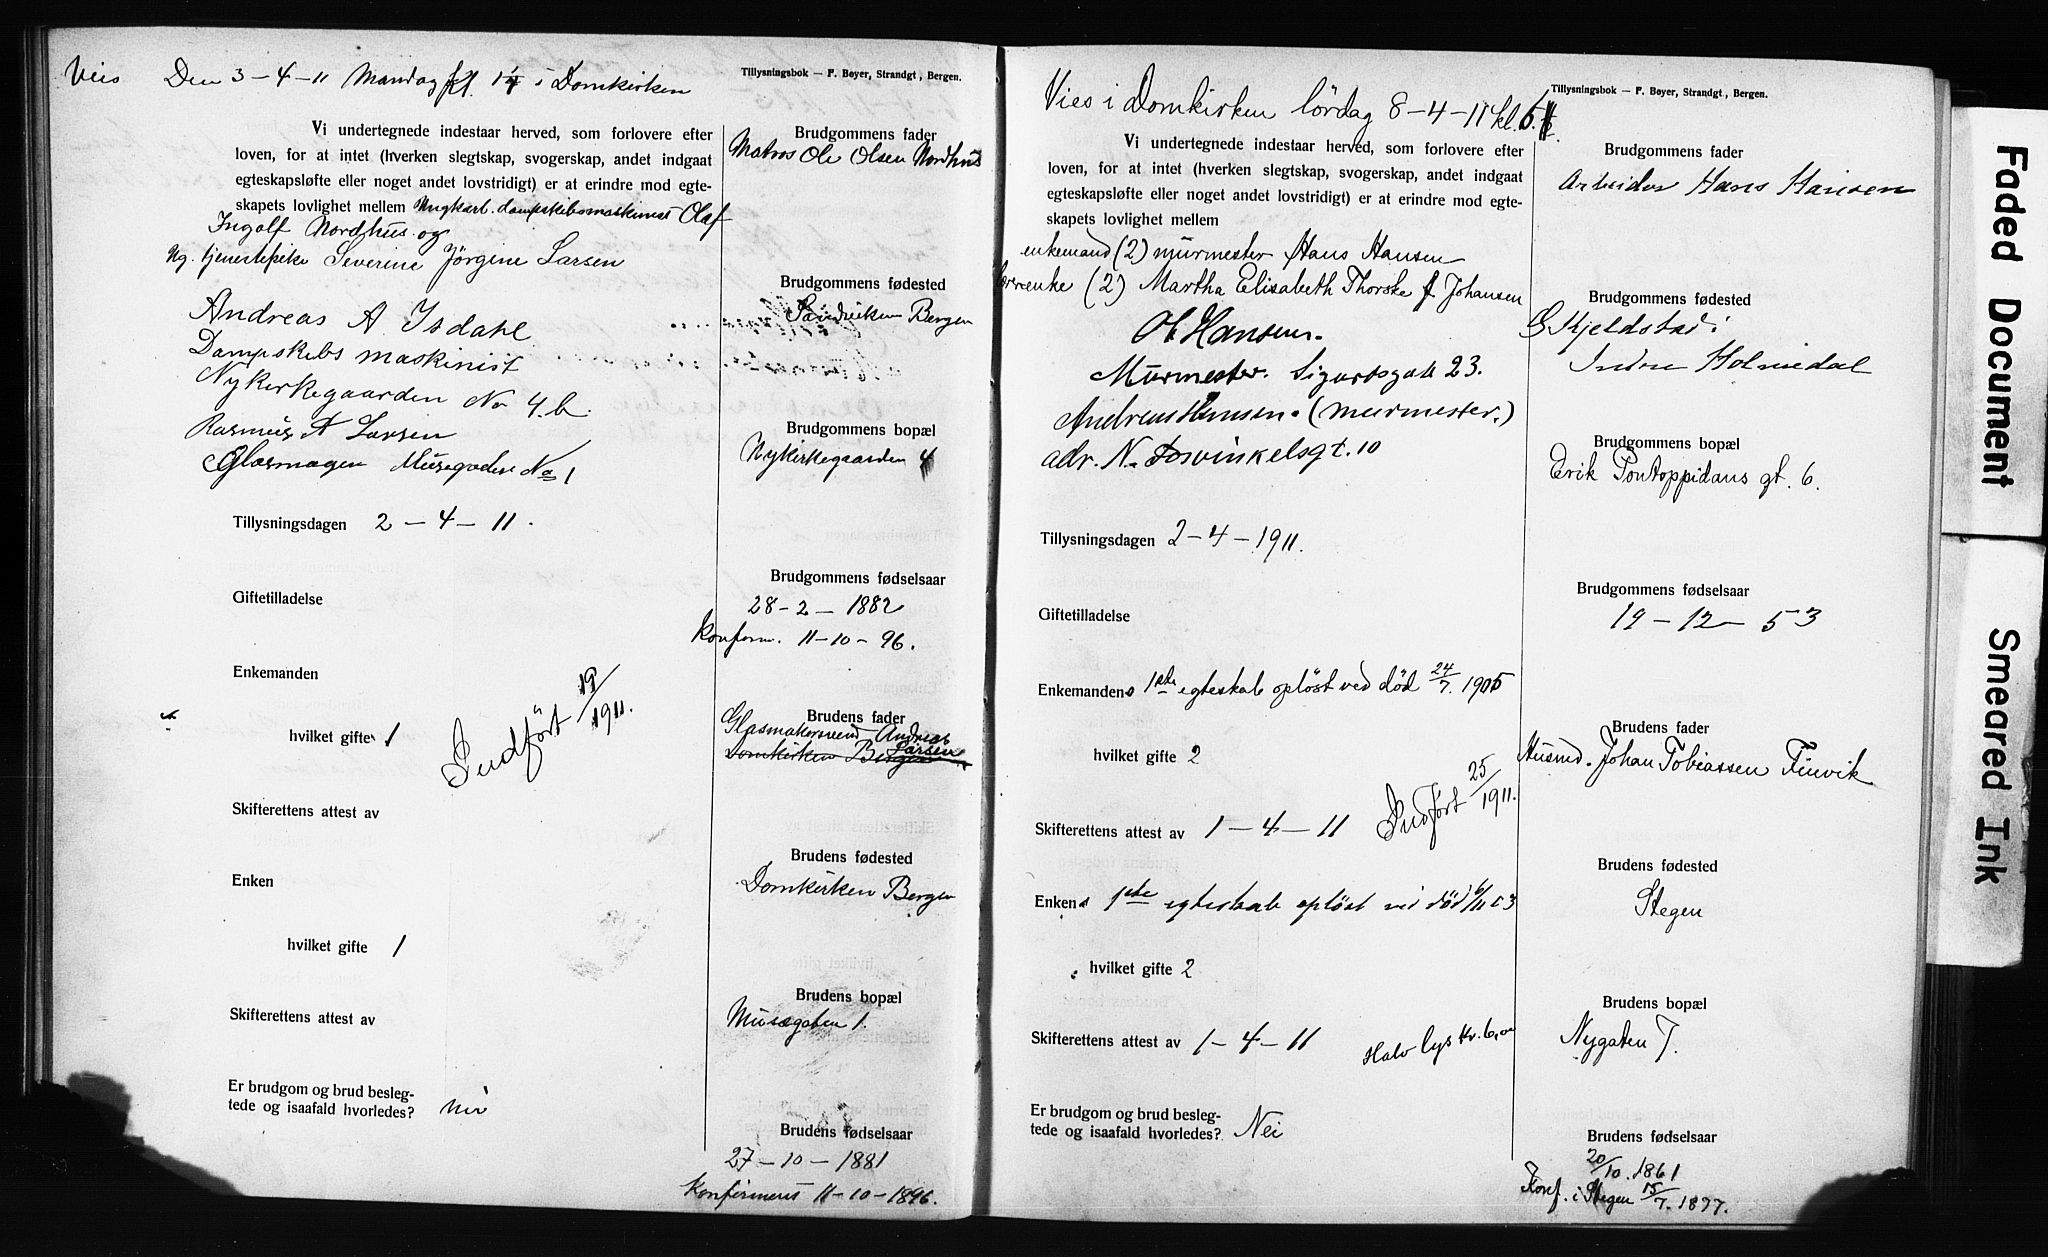 Vies Den 3-4-11 Mandag kl. i Domkirken
Tillysningsbok — F. Beyer, Strandgt, Bergen.
Vi undertegnede indestaar herved, som forlovere efter
loven, for at intet (hverken slegtskap, svogerskap, andet indgaat
egteskapsløfte eller noget andet lovstridigt) er at erindre mod egte-
skapets lovlighet mellem Ungkarl. dampskibsmaskinist Olaf
Ingolf Nordhus og
Ug. tjenestepike Severine Jörgine Larsen
Andreas A. Isdahl
Dampskibs maskinist
Nykirkegaarden No 4.b.
Rasmus A Larsen
Glasmagen No 1
Tillysningsdagen 2-4-11.
Giftetilladelse
Enkemanden
hvilket gifte 1
Indført 19/1911.
Skifterettens attest av
Enken
hvilket gifte 1
Skifterettens attest av
Er brudgom og brud besleg-
tede og isaafald hvorledes? nei
Brudgommens fader
Matros Ole Olsen Nordhus
Brudgommens fødested
Sandviken Bergen
Brudgommens bopæl
Nykirkegaarden 4
Brudgommens fødselsaar
28-2-1882
Konform. 11-10-96.
Brudens fader
Glasmakersvend Andreas
Larsen
Domkirken Bergen
Brudens fødested
Domkirken Bergen
Brudens bopæl
Musegaten 1.
Brudens fødselsaar
27-10-1881
Konfirmeret 11-10-1896.
Vies i Domkirken lördag 8-4-11 kl.
Tillysningsbok — F. Beyer, Strandgt, Bergen.
Vi undertegnede indestaar herved, som forlovere efter
loven, for at intet (hverken slegtskap, svogerskap, andet indgaat
egteskapsløfte eller noget andet lovstridigt) er at erindre mod egte-
skapets lovlighet mellem
enkemand (2) murmester Hans Hansen
enke (2) Martha Elisabeth Thorske f Johansen
Hansen.
Murmester. Sigurdsgate 23.
Andreas Hansen. (murmester.)
adr. N. 10
Tillysningsdagen 2-4-1911.
Giftetilladelse
Enkemandens 1ste egteskab opløst ved død 24/7. 1905
hvilket gifte 2
Indført 25/1911.
Skifterettens attest av 1-4-11
Enkens 1ste egteskab opløst ved död 6/11 03
hvilket gifte 2
Skifterettens attest av 1-4-11
Halv lys kr. 6,00
Er brudgom og brud besleg-
tede og isaafald hvorledes? Nei
Brudgommens fader
Arbeider Hans Hansen
Brudgommens fødested
Skjeldstad i
Indre Holmedal
Brudgommens bopæl
Erik Pontoppidans gt. 6.
Brudgommens fødselsaar
19-12-53
Brudens fader
Husmd. Johan Tobiassen Finvik
Brudens fødested
Stegen
Brudens bopæl
Nygaten 7.
Brudens fødselsaar
20/10. 1861
Konf. i Stegen 15/7. 1877.
Faded Document
Smeared Ink